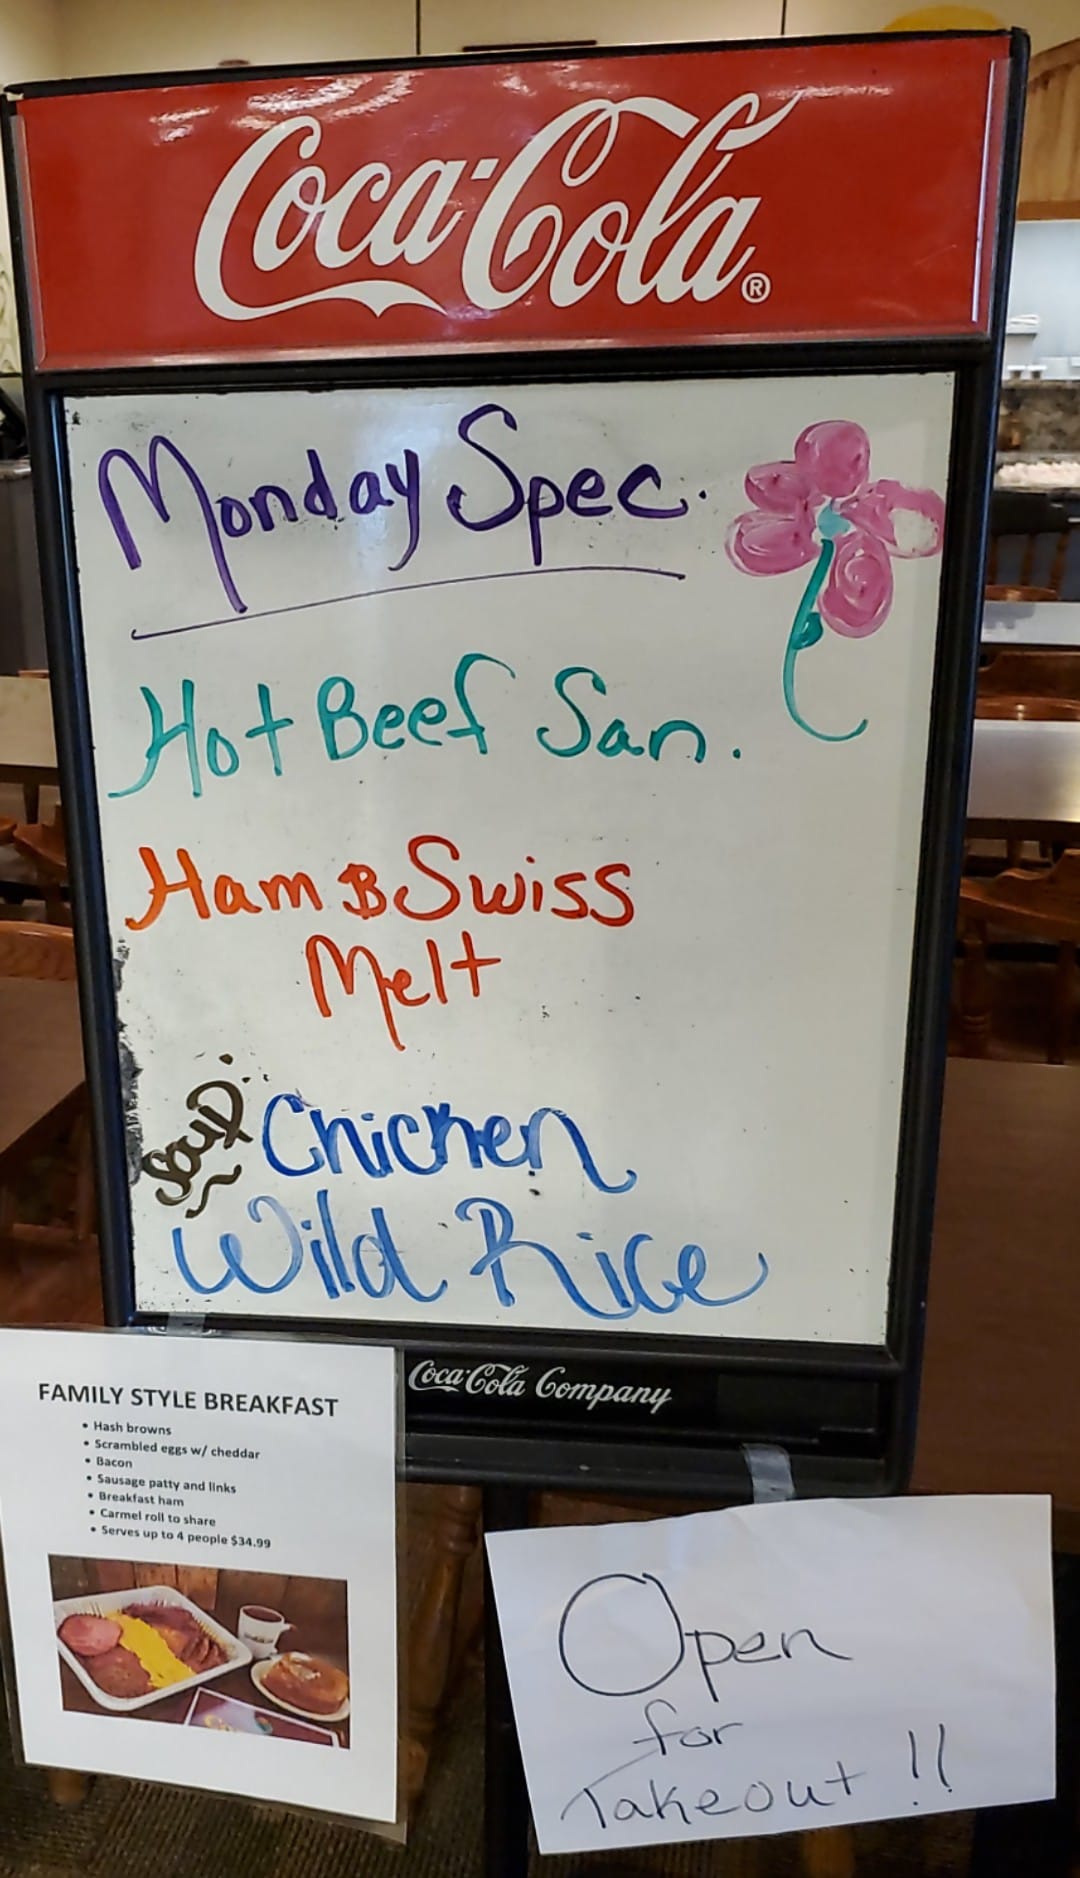 Coca-Cola®
Monday Spec.
Hot Beef San.
Ham & Swiss
Melt
Soup: Chicken
Wild Rice
Coca-Cola Company
FAMILY STYLE BREAKFAST
• Hash browns
• Scrambled eggs w/ cheddar
• Bacon
• Sausage patty and links
• Breakfast ham
• Carmel roll to share
• Serves up to 4 people $34.99
Open
for
Takeout!!